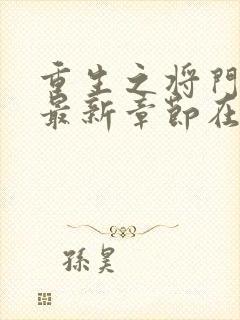 重生之将门
最新章节在
孫昊